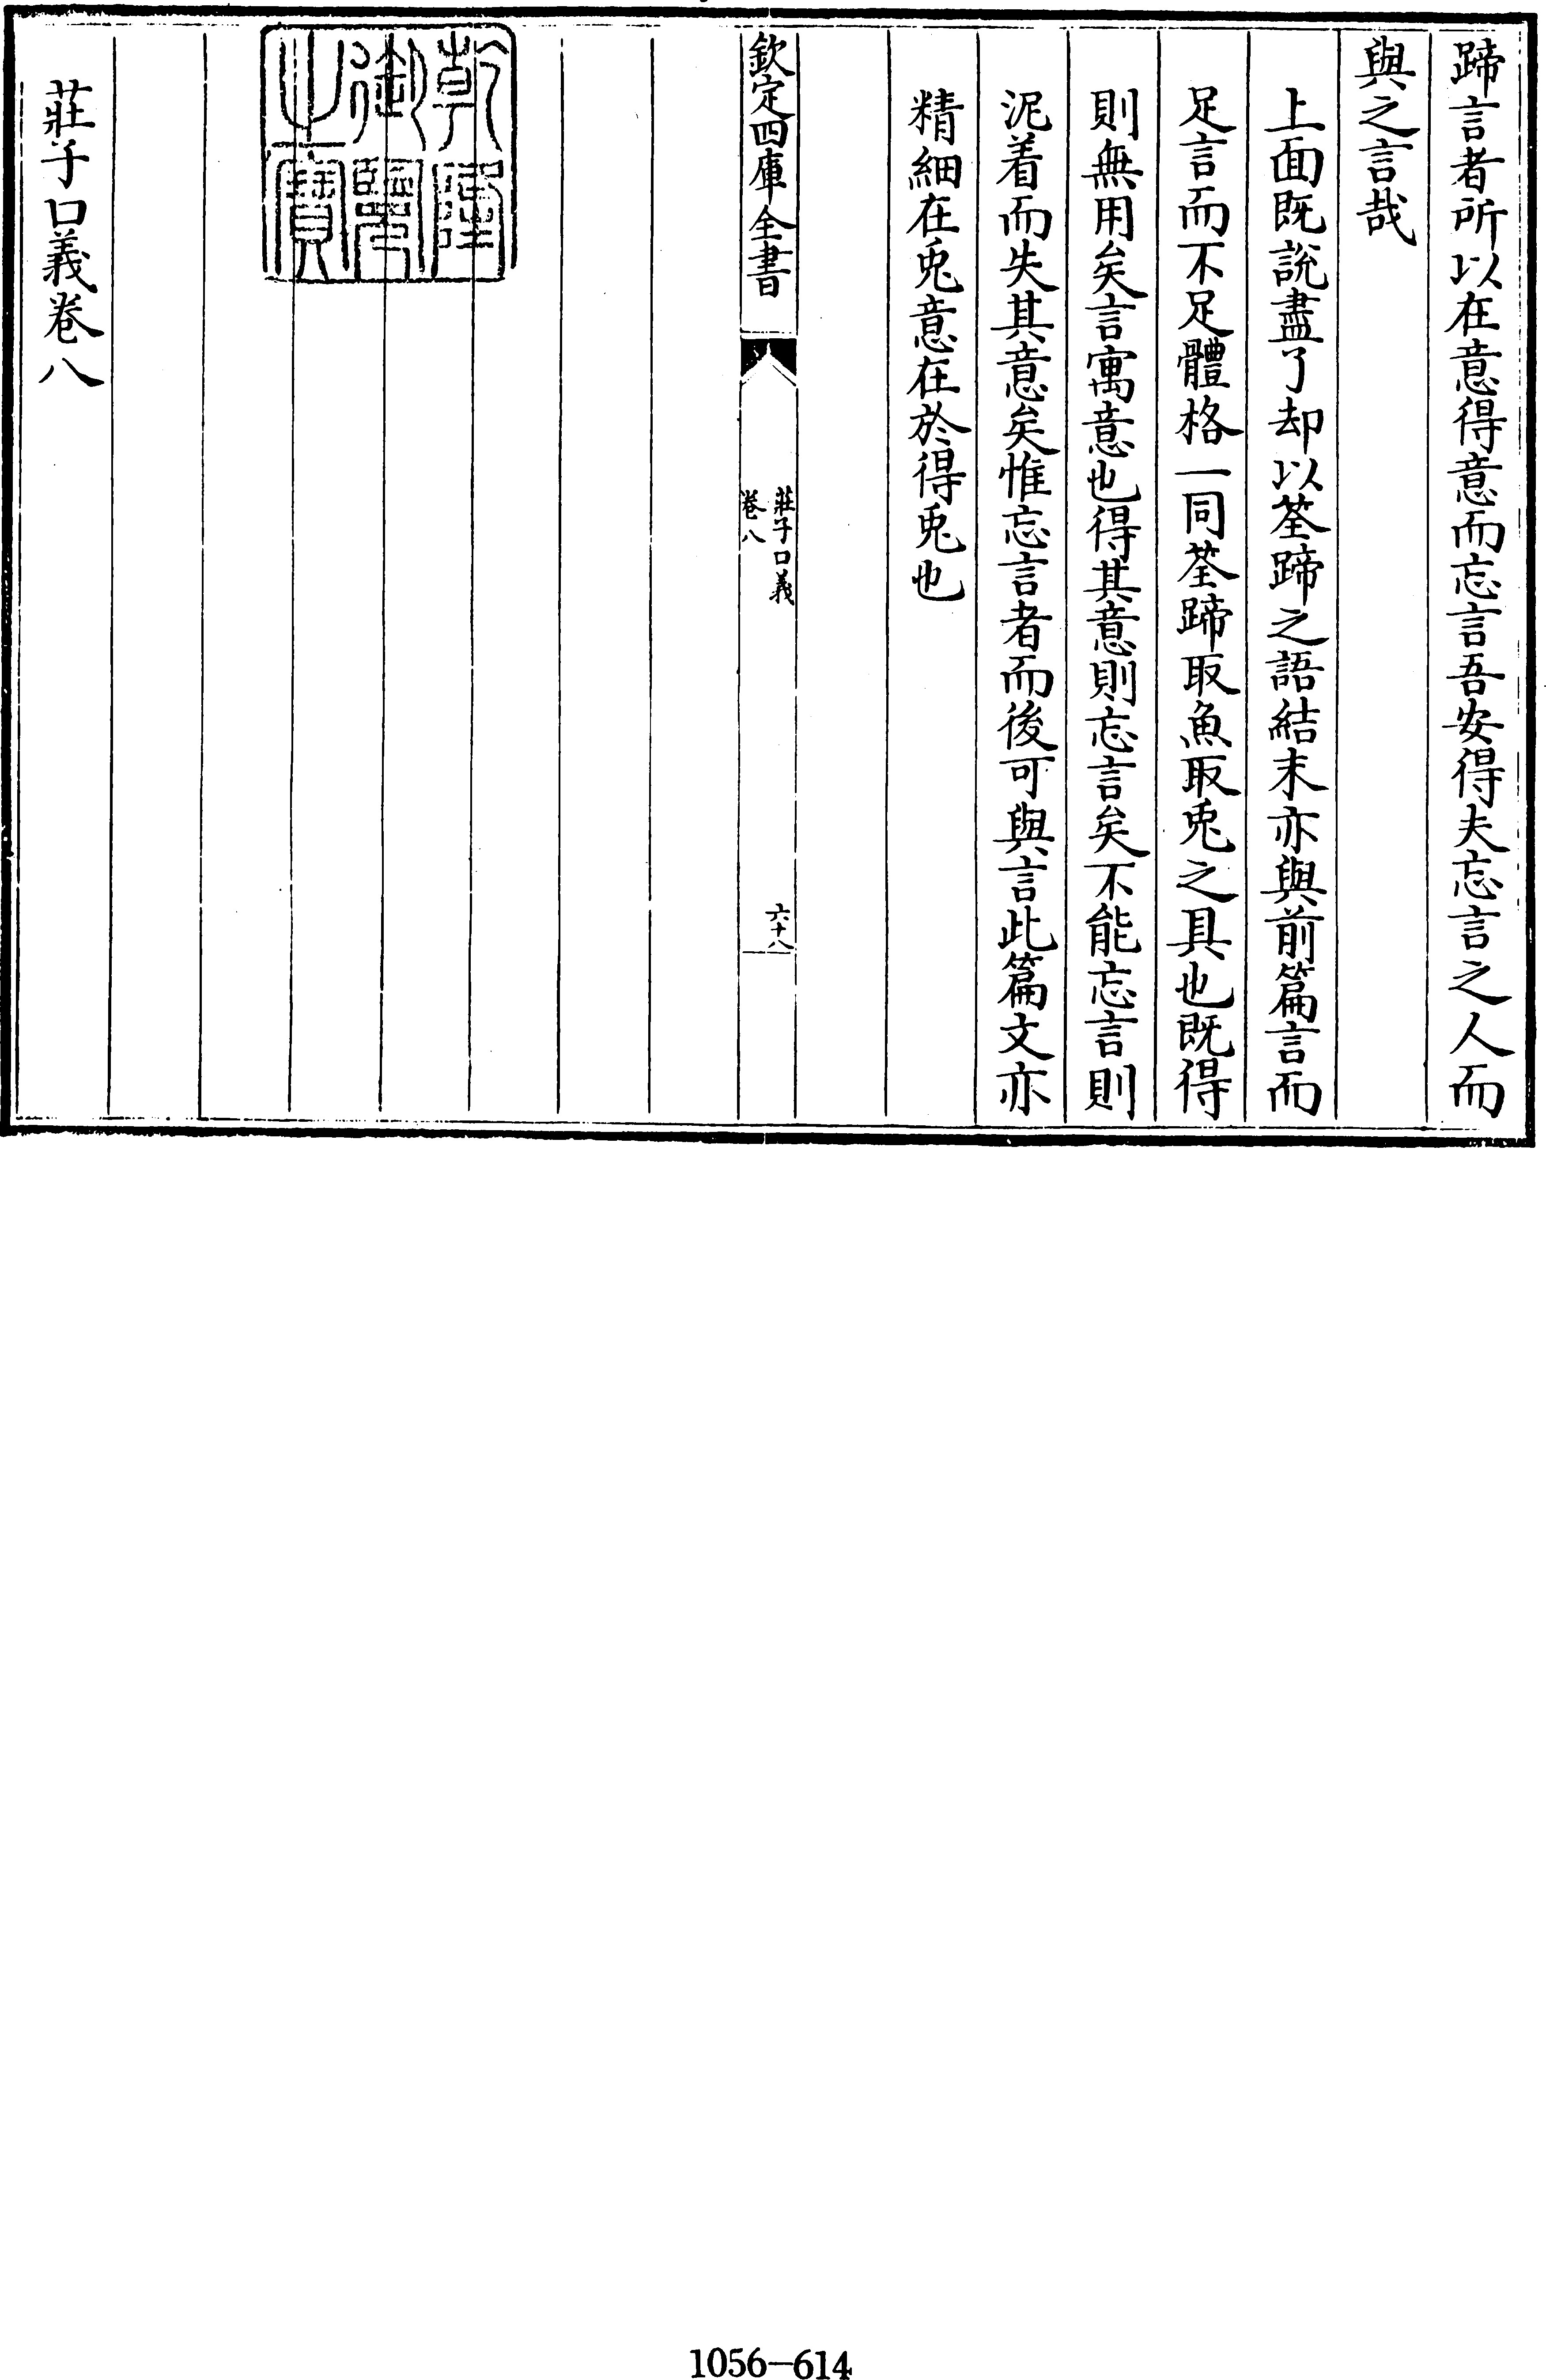 蹄言者所以在意得意而忘言吾安得夫忘言之人而
與之言哉
上面既説盡了却以荃蹄之語結末亦與前篇言而
足言而不足體格一同荃蹄取魚取兎之具也既得
則無用矣言寓意也得其意則忘言矣不能忘言則
泥着而失其意矣惟忘言者而後可與言此篇文亦
精細在兎意在於得兎也
欽定四庫全書
莊子口義
卷八
六十八
乾隆
御覽
之寶
莊子口義卷八
1056-614